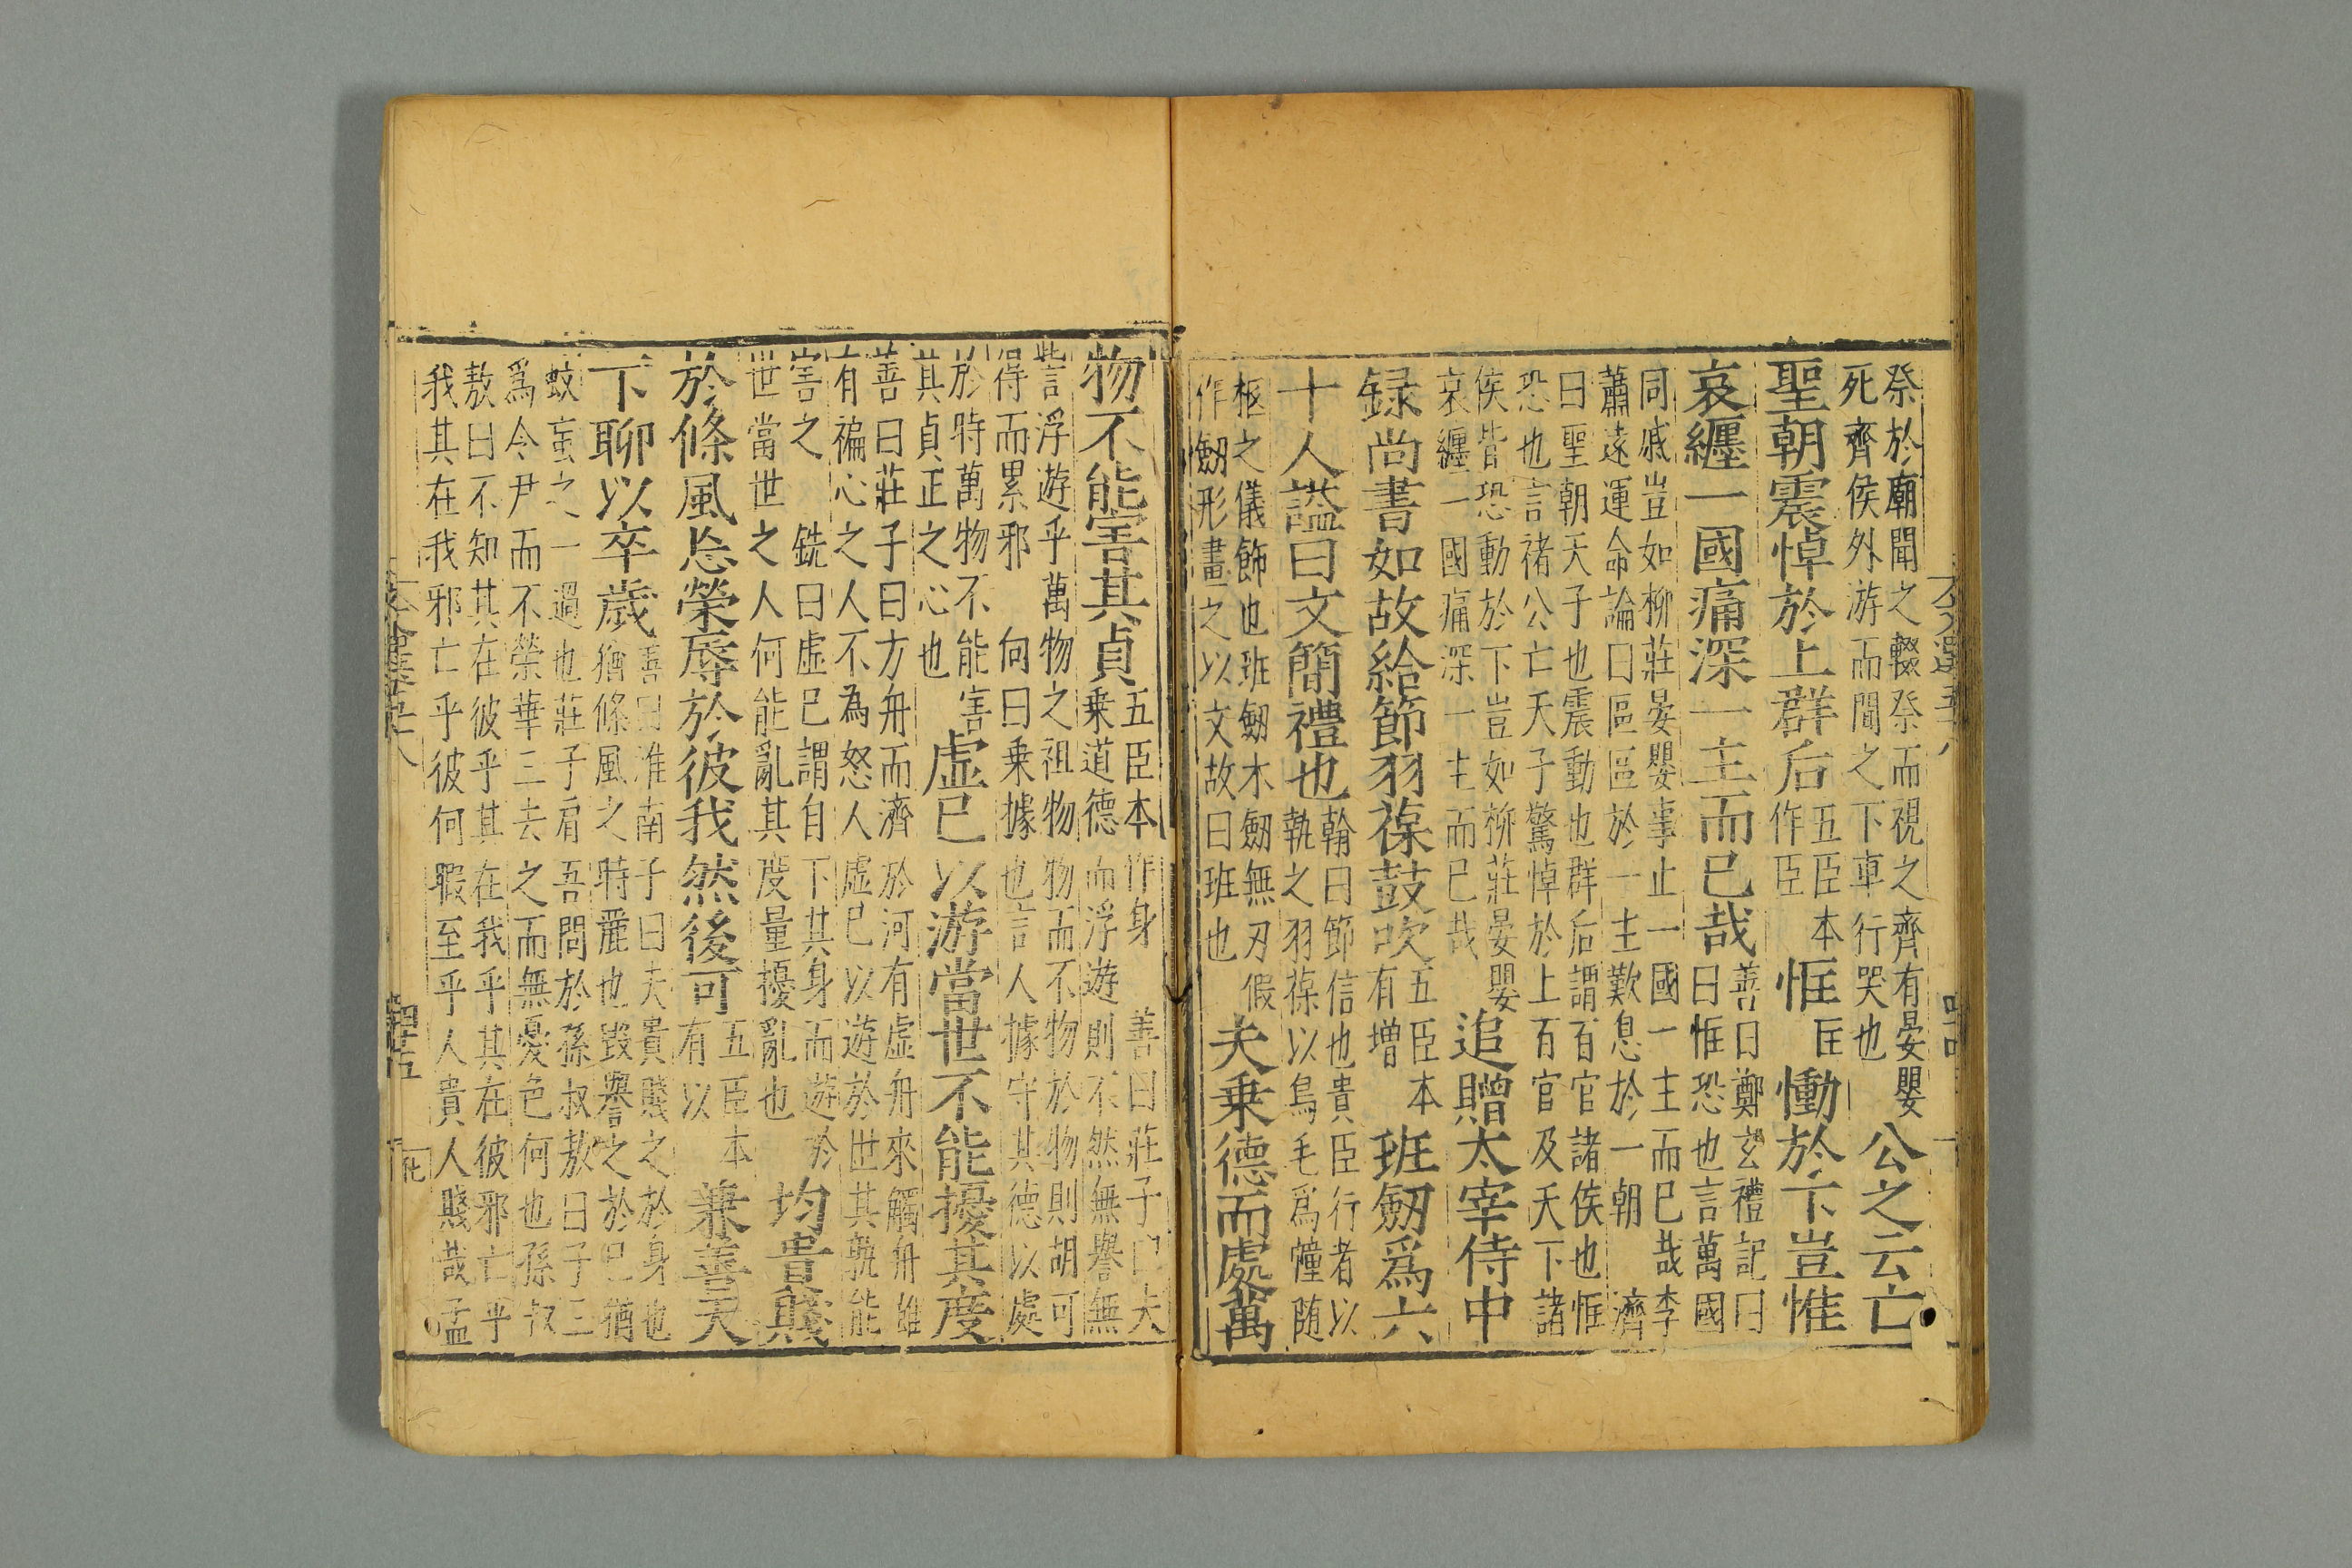 祭於廟聞之輟祭而視之齊有晏嬰
死齊侯外游而聞之下車行哭也
公之云亡
聖朝震悼於上群后
五臣本
作臣
恇
匡
慟於下豈惟
哀纏一國痛深一主而已哉
善曰鄭玄禮記曰
曰恇恐也言萬國
同戚豈如柳莊晏嬰事止一國一主而已哉李
蕭遠運命論曰區區於一主歎息於一朝 濟
曰聖朝天子也震動也群后謂百官諸侯也恇
恐也言褚公亡天子驚悼於上百官及天下諸
侯皆恐動於下豈如柳莊晏嬰
哀纏一國痛深一主而已哉
追贈太宰侍中
録尚書如故給節羽葆鼓吹
五臣本
有増
班劔爲六
十人謚曰文簡禮也
翰曰節信也貴臣行者以
執之羽葆以鳥毛爲幢随
柩之儀飾也班劔木劔無刃假
作劔形畫之以文故曰班也
夫乗德而處萬
物不能害其貞
五臣本作身 善曰莊子曰夫
乗道德而浮遊則不然無譽無
訾浮遊乎萬物之祖物物而不物於物則胡可
得而累邪 向曰乗據也言人據守其德以處
於時萬物不能害
其貞正之心也
虚已以游當世不能擾其度
善曰莊子曰方舟而濟於河有虚舟來觸舟雖
有褊心之人不為怒人虚已以遊於世其孰能
害之 銑曰虚已謂自下其身而遊於
世當世之人何能亂其度量擾亂也
均貴賤
於條風忘榮辱於彼我然後可
五臣本
有以
兼善天
下聊以卒歳
善曰淮南子曰夫貴賤之於身也
猶條風之時麗也毀譽之於已猶
蚊䖟之一過也莊子肩吾問於孫叔敖曰子三
爲令尹而不榮華三去之而無憂色何也孫叔
敖曰不知其在彼乎其在我乎其在彼邪亡乎
我其在我邪亡乎彼何暇至乎人貴人賤哉孟